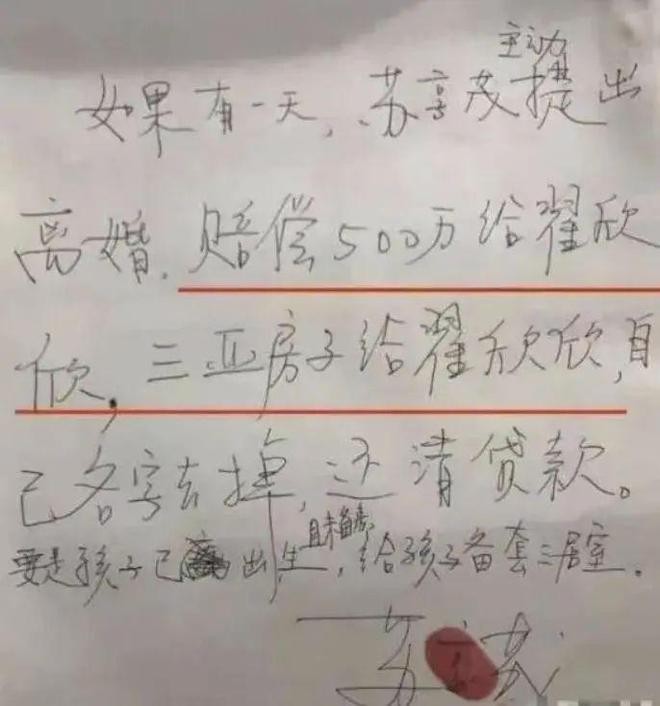 主动
如果有一天,苏享茂提出
离婚,赔偿500万给翟欣
欣,三亚房子给翟欣欣,自
己名字去掉,还清贷款。
且未备房
要是孩子已出生,给孩子备套三居室。
苏享茂